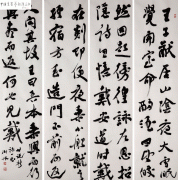 王子猷居山陰夜大雪眠
覺開室命酌酒四望皎
然因起彷徨詠左思招
隱詩忽憶戴安道時戴
在剡即便夜乘小船就之
經宿方至造門不前而返
人問其故王曰吾本乘興而行
興盡而返何必見戴